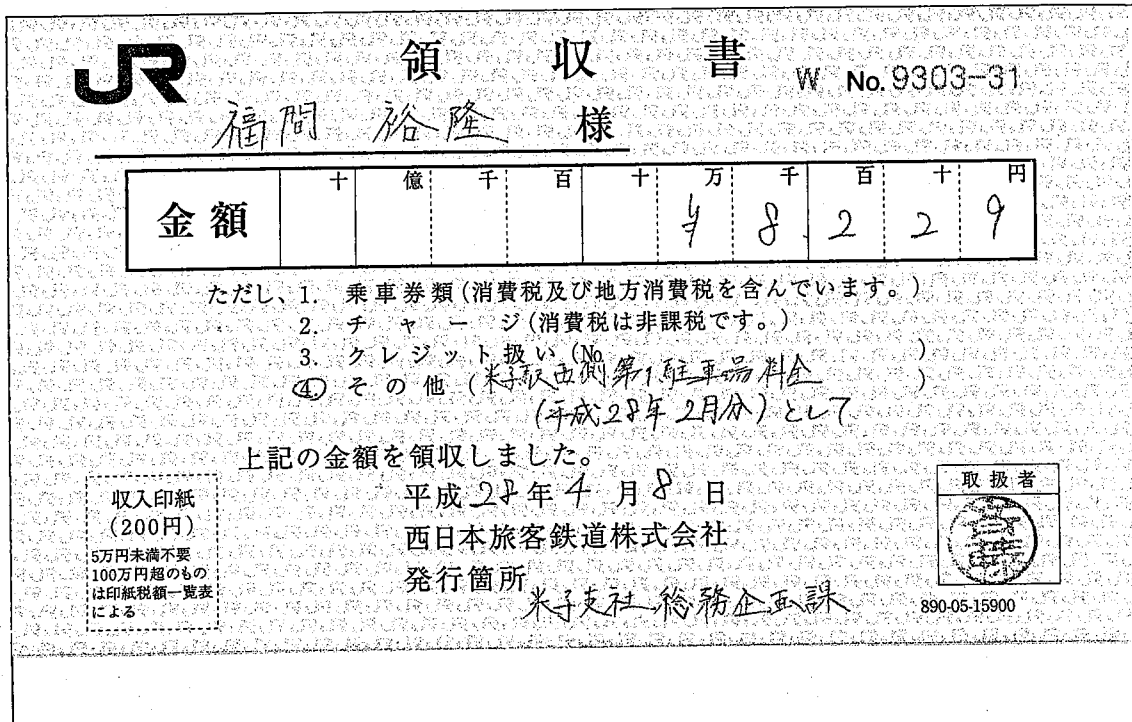 JR 領収書 W No. 9303-31
福間 裕隆 様
金額 十 億 千 百 十 万 千 百 十 円
¥ 8 2 2 9
ただし、1. 乗車券類(消費税及び地方消費税を含んでいます。)
2. チャージ(消費税は非課税です。)
3. クレジット扱い(No. )
4. その他(米子駅西側第1駐車場料金 )
(平成28年2月分)として
上記の金額を領収しました。
平成28年4月8日
西日本旅客鉄道株式会社
発行箇所 米子支社 総務企画課
収入印紙
(200円)
5万円未満不要
100万円超のもの
は印紙税額一覧表
による
取扱者
890-05-15900